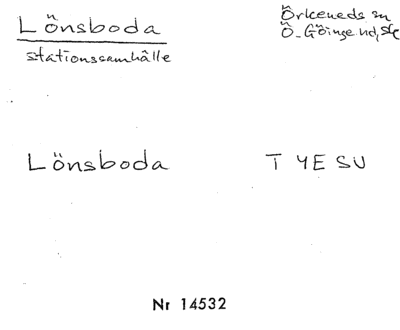 Lönsboda
stationssamhälle
Örkeneds sn
Ö. Göinge hd, Sk
Lönsboda T YESU
Nr 14532